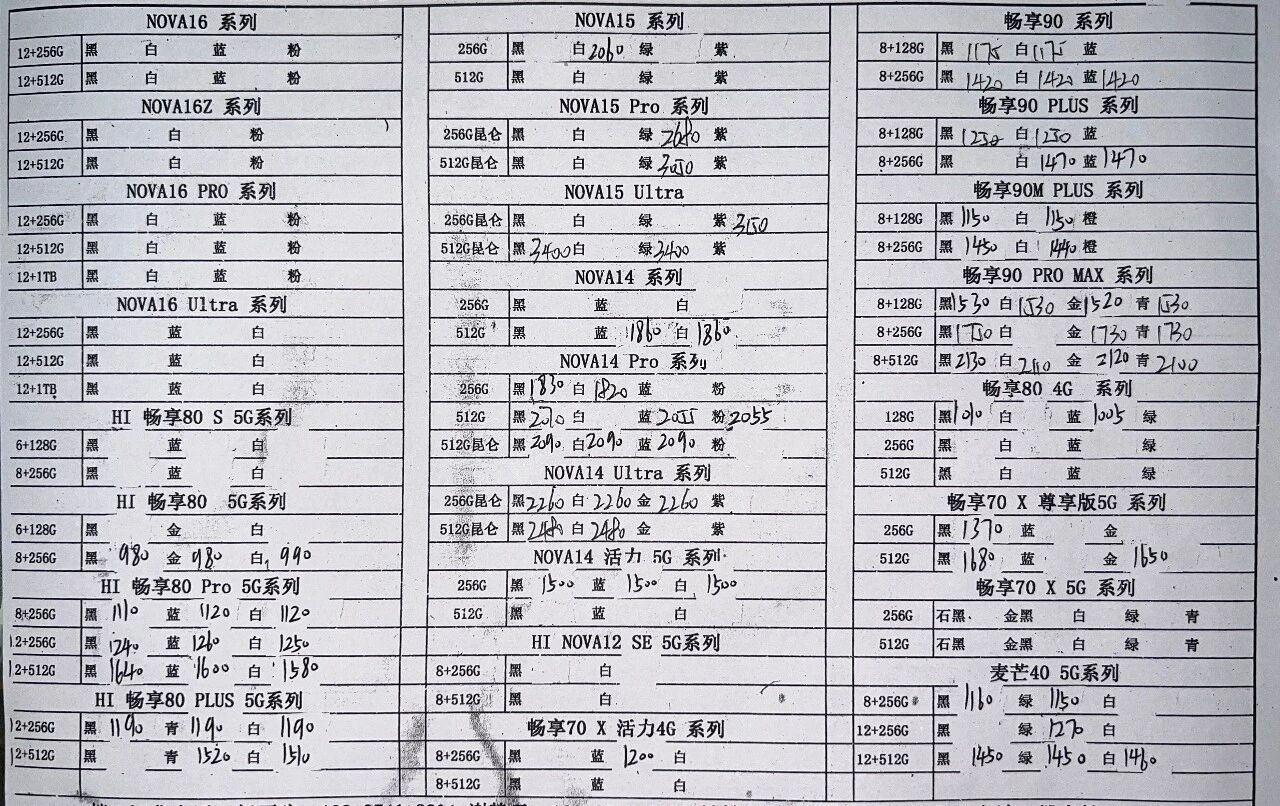 NOVA16 系列
12+256G 黑 白 蓝 粉
12+512G 黑 白 蓝 粉
NOVA16Z 系列
12+256G 黑 白 粉
12+512G 黑 白 粉
NOVA16 PRO 系列
12+256G 黑 白 蓝 粉
12+512G 黑 白 蓝 粉
12+1TB 黑 白 蓝 粉
NOVA16 Ultra 系列
12+256G 黑 蓝 白
12+512G 黑 蓝 白
12+1TB 黑 蓝 白
HI 畅享80 S 5G系列
6+128G 黑 蓝 白
8+256G 黑 蓝 白
HI 畅享80 5G系列
6+128G 黑 金 白
8+256G 黑 980 金 980 白 990
HI 畅享80 Pro 5G系列
8+256G 黑 1110 蓝 1120 白 1120
12+256G 黑 1240 蓝 1260 白 1250
12+512G 黑 1640 蓝 1600 白 1580
HI 畅享80 PLUS 5G系列
12+256G 黑 1190 青 1190 白 1190
12+512G 黑 青 1520 白 1510
NOVA15 系列
256G 黑 白 2060 绿 紫
512G 黑 白 绿 紫
NOVA15 Pro 系列
256G昆仑 黑 白 绿 2680 紫
512G昆仑 黑 白 绿 3050 紫
NOVA15 Ultra
256G昆仑 黑 白 绿 紫 3150
512G昆仑 黑 3400 白 绿 3400 紫
NOVA14 系列
256G 黑 蓝 白
512G 黑 蓝 1860 白 1860
NOVA14 Pro 系列
256G 黑 1830 白 1820 蓝 粉
512G 黑 2070 白 蓝 2055 粉 2055
512G昆仑 黑 2090 白 2090 蓝 2090 粉
NOVA14 Ultra 系列
256G昆仑 黑 2260 白 2260 金 2260 紫
512G昆仑 黑 2480 白 2480 金 紫
NOVA14 活力 5G 系列
256G 黑 1500 蓝 1500 白 1500
512G 黑 蓝 白
HI NOVA12 SE 5G系列
8+256G 黑 白
8+512G 黑 白
畅享70 X 活力4G 系列
8+256G 黑 蓝 1200 白
8+512G 黑 蓝 白
畅享90 系列
8+128G 黑 1175 白 1175 蓝
8+256G 黑 1420 白 1420 蓝 1420
畅享90 PLUS 系列
8+128G 黑 1250 白 1250 蓝
8+256G 黑 白 1470 蓝 1470
畅享90M PLUS 系列
8+128G 黑 1150 白 1150 橙
8+256G 黑 1450 白 1440 橙
畅享90 PRO MAX 系列
8+128G 黑 1530 白 1530 金 1520 青 1530
8+256G 黑 1750 白 金 1730 青 1730
8+512G 黑 2130 白 2110 金 2120 青 2100
畅享80 4G 系列
128G 黑 1010 白 蓝 1005 绿
256G 黑 白 蓝 绿
512G 黑 白 蓝 绿
畅享70 X 尊享版5G 系列
256G 黑 1370 蓝 金
512G 黑 1680 蓝 金 1650
畅享70 X 5G 系列
256G 石黑 金黑 白 绿 青
512G 石黑 金黑 白 绿 青
麦芒40 5G系列
8+256G 黑 1160 绿 1150 白
12+256G 黑 绿 1270 白
12+512G 黑 1450 绿 1450 白 1460